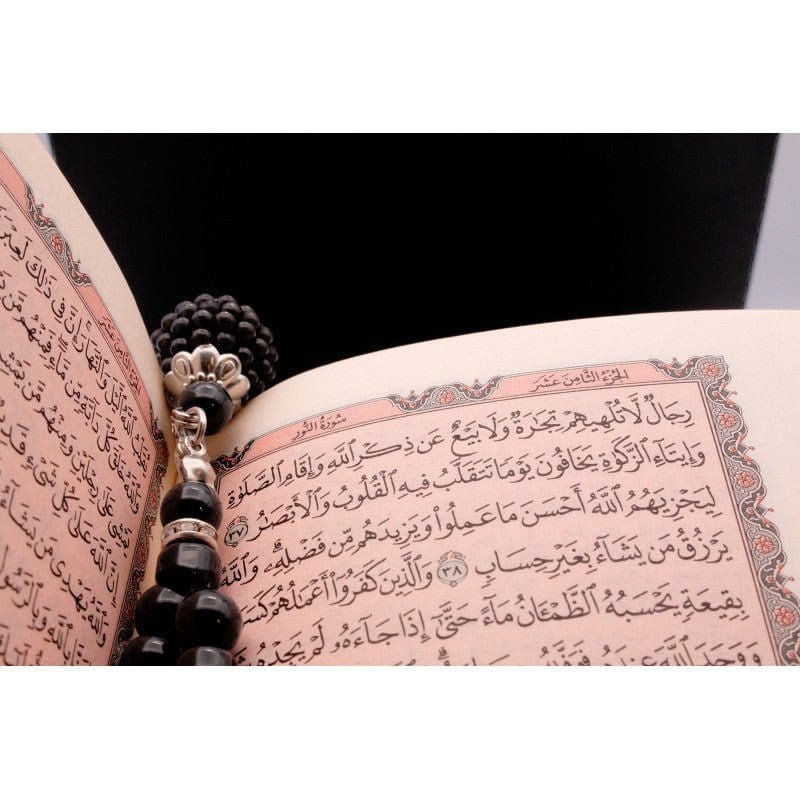 الجزء الثامن عشر
سورة النور
رِجَالٌ لَّا تُلْهِيهِمْ تِجَٰرَةٌ وَلَا بَيْعٌ عَن ذِكْرِ ٱللَّهِ وَإِقَامِ ٱلصَّلَوٰةِ
وَإِيتَآءِ ٱلزَّكَوٰةِ يَخَافُونَ يَوْمًا تَتَقَلَّبُ فِيهِ ٱلْقُلُوبُ وَٱلْأَبْصَٰرُ ٣٧
لِيَجْزِيَهُمُ ٱللَّهُ أَحْسَنَ مَا عَمِلُوا۟ وَيَزِيدَهُم مِّن فَضْلِهِۦ وَٱللَّهُ
يَرْزُقُ مَن يَشَآءُ بِغَيْرِ حِسَابٍ ٣٨ وَٱلَّذِينَ كَفَرُوٓا۟ أَعْمَٰلُهُمْ كَسَ
بِقِيعَةٍ يَحْسَبُهُ ٱلظَّمْـَٔانُ مَآءً حَتَّىٰٓ إِذَا جَآءَهُۥ لَمْ يَجِدْهُ شَ
وَوَجَدَ ٱللَّهَ عِندَهُۥ فَوَفَّىٰهُ
ٱللَّهُ ٱلَّيْلَ وَٱلنَّهَارَ إِنَّ فِى ذَٰلِكَ لَعِبْرَ
وَٱللَّهُ خَلَقَ كُلَّ دَآبَّةٍ مِّن مَّآءٍ فَمِنْهُم مَّن
عَلَىٰ رِجْلَيْنِ وَمِنْهُم مَّن يَمْشِى
إِنَّ ٱللَّهَ عَلَىٰ كُلِّ شَىْءٍ قَدِ
وَٱللَّهُ يَهْدِى مَن يَشَآءُ
بِٱللَّهِ وَبِٱلرَّسُولِ